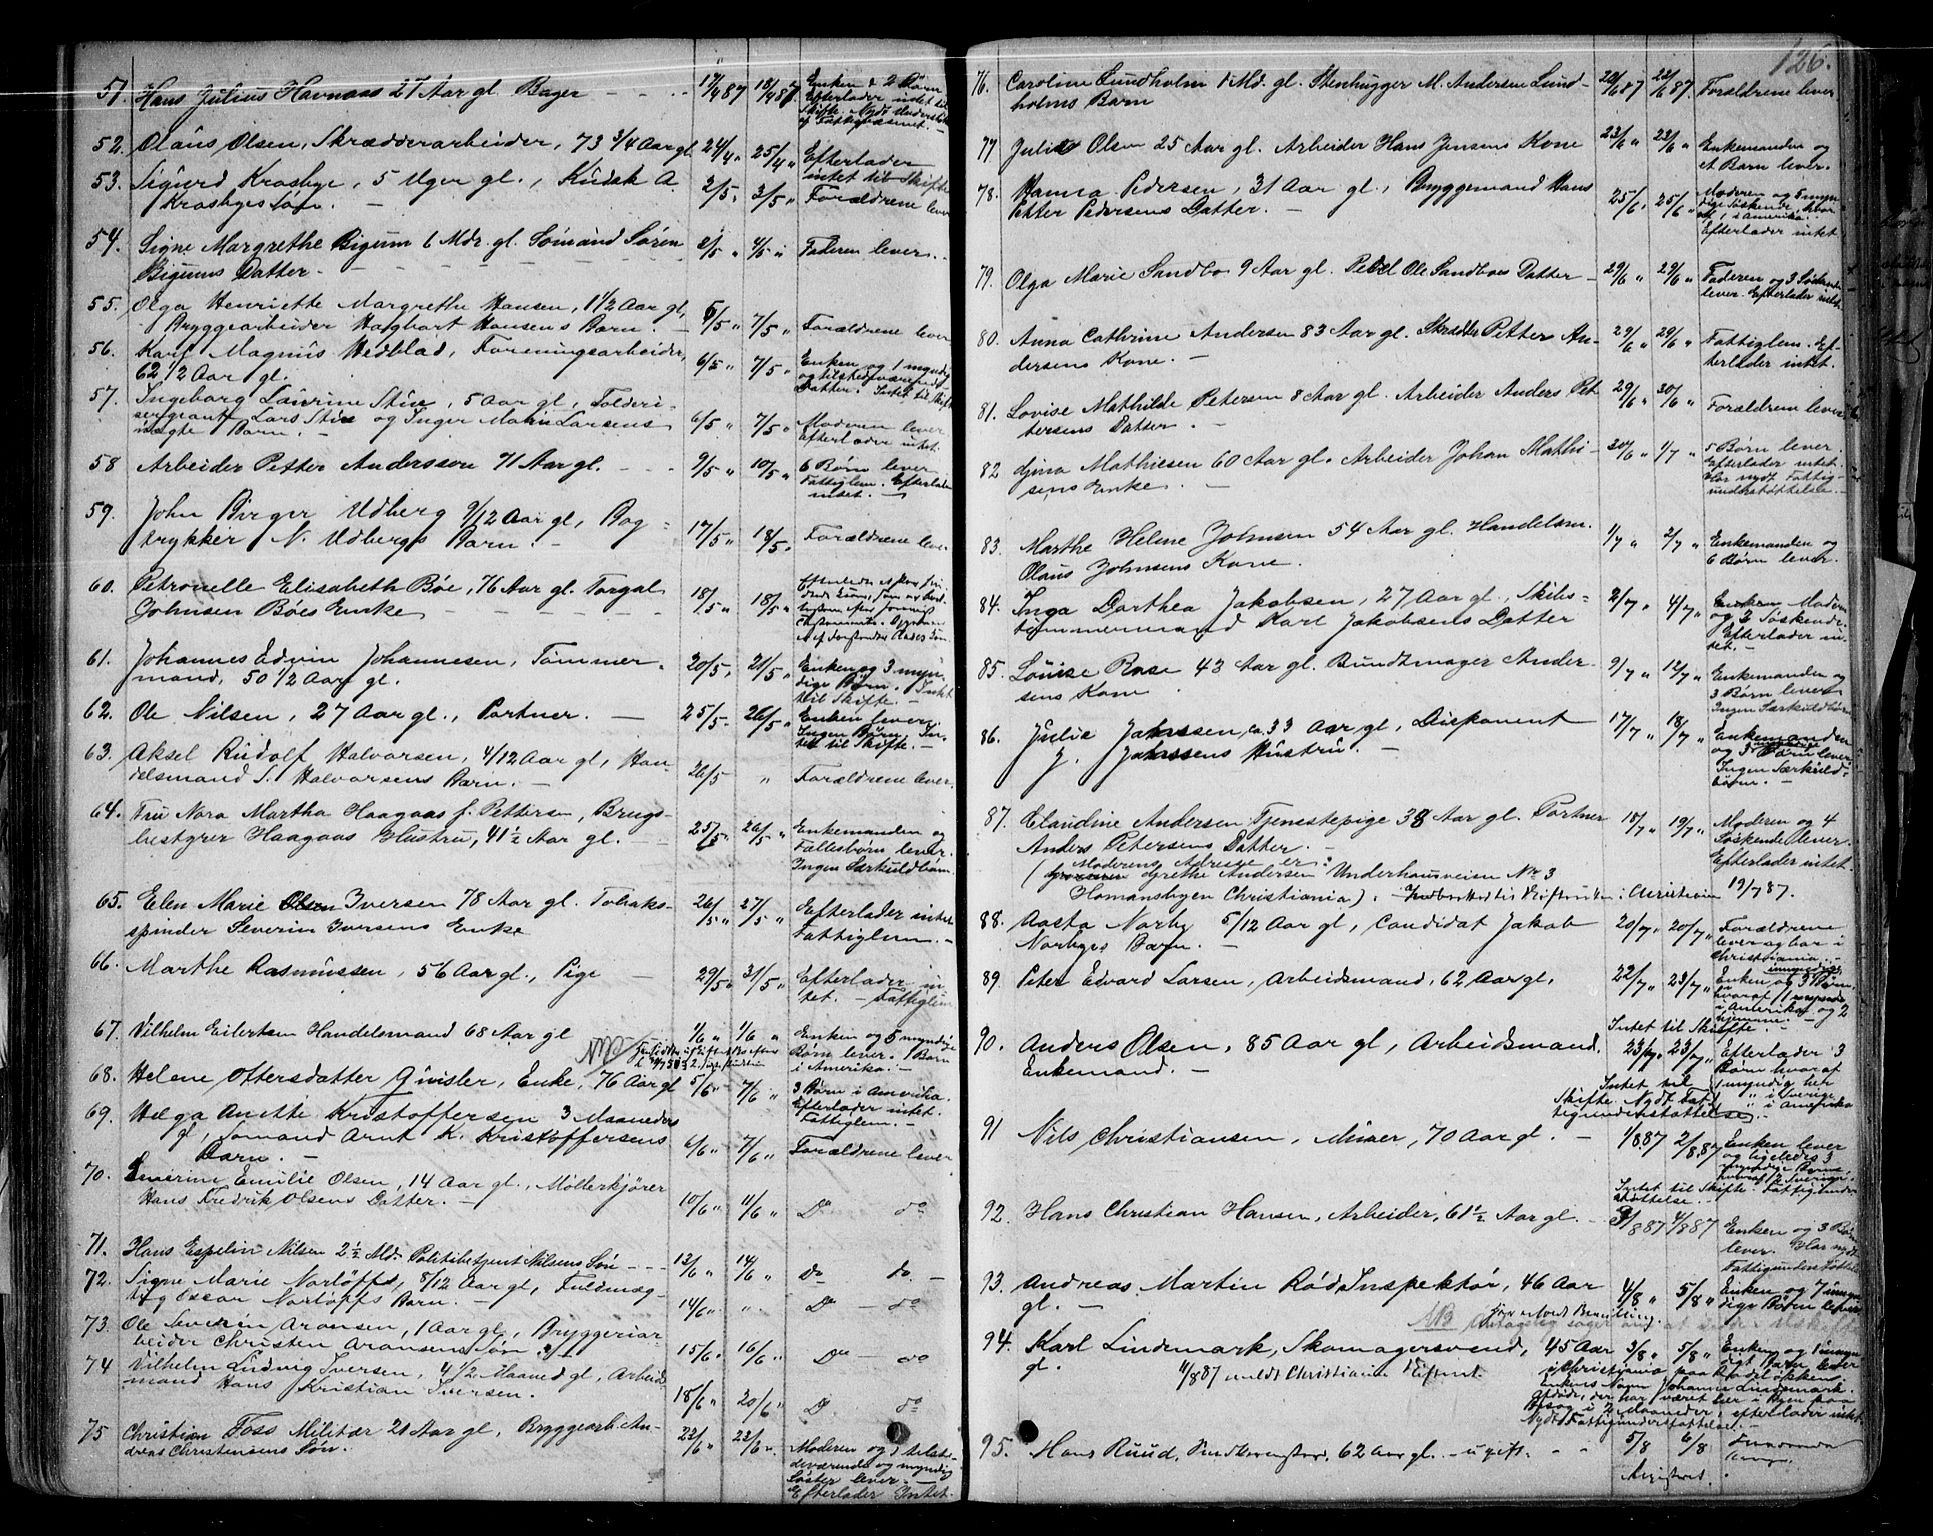 126.
51. Hans Julius Havnaas 27 Aar gl. Bager - - - 17/4 87 18/4 87 Enken & 2 Børn
Efterlader intet til
Skifte. Nydt Understøt
af Fattigvæsenet. -
52. Olaus Olsen, Skrædderarbeider, 73 3/4 Aar gl 24/4 " 25/4 " Efterlader
intet til Skifte
53. Sigurd Krosbye, 5 Uger gl., Kudsk A. 2/5 " 3/5 " Forældrene lever
Krosbyes Søn. -
54. Signe Margrethe Bigum 6 Mdr. gl. Sømand Søren 2/5 " 4/5 " Faderen lever. -
Bigums Datter - - - - - -
55. Olga Henriette Margrethe Hansen, 1 1/2 Aar gl,
Bryggearbeider Hagbart Hansens Barn. - 6/5 " 7/5 " Forældrene lever
56. Karl Magnus Wedblad, Foreningsarbeider, 6/5 " 7/5 " Enken og 1 myndig
62 1/2 Aar gl. og tilstedeværende
Datter. Intet til Skift
57. Ingeborg Laurine Stix, 5 Aar gl, Tolderi-
sergeant Lars Stix og Inger Malin Larsens 6/5 " 7/5 " Moderen lever
uægte Barn. - Efterlader intet.
58 Arbeider Petter Andersson 71 Aar gl. - - - 9/5 " 10/5 " 6 Børn lever
Fattiglem. Efterlader
intet. -
59. John Birger Udberg 9/12 Aar gl, Bog-
trykker N. Udbergs Barn. - 17/5 " 18/5 " Forældrene lever
60. Petronelle Elisabeth Böe, 76 Aar gl. Torgal 18/5 " 18/5 "
Johnsen Böes Enke - - -
61. Johannes Edvin Johannesen, Tømmer- 20/5 " 21/5 " Enken og 3 myn-
mand, 50 1/2 Aar gl. dige Børn. Intet
til Skifte. -
62. Ole Nilsen, 27 Aar gl., Portner. - 25/5 " 26/5 " Enken lever.
Ingen Børn. In-
tet til Skifte. -
63. Aksel Rudolf Halvorsen, 4/12 Aar gl, Han-
delsmand S. Halvorsens Barn. - 26/5 " Forældrene lever
64. Fru Nora Martha Haagaas f. Petterson, Brugs-
bestyrer Haagaas Hustru, 41 1/2 Aar gl. - 25/5 " 26/5 " Enkemanden og
Fællesbørn lever.
Ingen Særkuldbørn.
65. Elen Marie Olsen Iversen 78 Aar gl. Tobaks- 26/5 " 27/5 " Efterlader intet
spinder Severin Iversens Enke Fattiglem. -
66. Marthe Rasmussen, 56 Aar gl., Pige - 29/5 " 31/5 " Efterlader in-
tet. - Fattiglem
67. Vilhelm Eilertsen Handelsmand 68 Aar gl 1/6 " 1/6 " Enken og 5 myndige
Børn lever. 1 Barn
i Amerika. -
68. Helene Oftersdatter Givisler, Enke, 76 Aar gl 5/6 " 7/6 " 3 Børn i Amerika.
Efterlader intet.
Fattiglem. -
69. Helga Anette Kristoffersen 3 Maaneder
gl, Sømand Arnt K. Kristoffersens 6/6 " 7/6 " Forældrene lever
Barn. -
70. Severine Emilie Olsen, 14 Aar gl., Møllerkjører
Hans Fredrik Olsens Datter. - 10/6 " 11/6 " Do do
71. Hans Espelin Nilsen 2 1/2 Md. Politibetjent Nilsens Søn - - - 13/6 " 14/6 " Do do. -
72. Signe Marie Norløffs, 8/12 Aar gl, Fuldmæg-
tig Oscar Norløffs Barn. - 14/6 " " Do - do
73. Ole Severin Aronsen, 1 Aar gl, Bryggeriar-
beider Christen Aronsens Søn 15/6 " 16/6 " Do - do
74 Vilhelm Ludvig Iversen, 4 1/2 Maaned gl, Arbeid-
mand Hans Kristian Iversen. 18/6 " 20/6 " D do
75 Christian Foss Militær 21 Aar gl, Bryggearb. An- 22/6 " 23/6 " Moderen og 1 tilste-
dreas Christensens Søn. deværende og myndig
Søster lever. -
Efterlader Intet.
76. Caroline Lundholm 1 Md. gl. Stenhugger M. Andersen Lund- 20/6 87 22/6 87. Forældrene lever
holms Barn
77 Julie Olsen 25 Aar gl. Arbeider Hans Jensens Kone 23/6 " 23/6 " Enkemanden og
et Barn lever.
78. Hanna Pedersen, 31 Aar gl, Bryggemand Hans 25/6 " 25/6 " Moderen og 5 myn-
Petter Pedersens Datter. - dige Søskende, hvor
af 1 i Amerika.
Efterlader intet
79. Olga Marie Sandbo 9 Aar gl. Ole Sandboes Datter - 29/6 " 29/6 " Faderen og 3 Søskende
lever. Efterlader intet.
80. Anna Cathrine Andersen 83 Aar gl. Skrædder Petter An- 29/6 " 29/6 " Fattiglem. Ef-
dersens Kone. - terlader intet.
81. Lovise Mathilde Petersen 8 Aar gl. Arbeider Anders Pet- 29/6 " 30/6 " Forældrene lever
tersens Datter. -
82 Gina Mathiesen 60 Aar gl. Arbeider Johan Mathi- 30/6 " 1/7 " 5 Børn lever
sens Enke. - Efterlader intet.
Har nydt Fattig-
understøttelse. -
83. Marthe Helene Johnsen 54 Aar gl. Handelsm. 1/7 " 2/7 " Enkemanden og
Olaus Johnsens Kone. 6 Børn lever.
84. Inga Dorthea Jakobsen, 27 Aar gl., Skibs- 2/7 " 4/7 " Enken Moderen
tømmermand Karl Jakobsens Datter og 2 Søskende.
Efterlader in-
tet. -
85. Louise Rose 43 Aar gl. Bundtmager Ander- 9/7 " 12/7 " Enkemanden og
sens Kone 3 Børn lever
Ingen Særkuldbørn
86. Julie Jahnssen, ca. 33 Aar gl, Disponent 17/7 " 18/7 " Enkemanden
J. Jahnssens Hustru. - og 3 Børn lever
Ingen Særkuld-
børn. -
87. Claudine Andersen Tjenestepige 38 Aar gl. Portner 18/7 " 19/7 " Moderen og 4
Anders Petersens Datter. - Søskende lever.
Efterlader intet.
(Moderens Adresse er:
Grethe Andersen Underhaugsveien No 3
Homansbyen Christiania). Christiania 19/7 87.
88. Aasta Norby 5/12 Aar gl, Candidat Jakob 20/7 " 20/7 " Forældrene
Norbys Barn. - lever og bor i
Christiania. -
89. Peter Edvard Larsen, Arbeidsmand, 62 Aar gl. 22/7 " 23/7 " Enken og 3 Børn,
hvoraf 1
i Amerika og 2
hjemme. -
Intet til Skifte. -
90. Anders Olsen, 85 Aar gl, Arbeidsmand. 23/7 " 23/7 " Efterlader 3
Enkemand. - Børn hvoraf
1 myndig her
" i Sverige
" i Amerika
Intet til
Skifte. Nydt Fat-
tigunderstøttelse. -
91 Nils Christiansen, Murer, 70 Aar gl. - 1/8 87 2/8 87 Enken lever
og ligeledes 3
myndige Børn,
hvoraf 1 i Sverige.
Intet til Skifte. Fattigunder-
støttelse. -
92. Hans Christian Hansen, Arbeider, 61 1/2 Aar gl. - 3/8 87 4/8 87 Enken og 3 Børn
lever. Har nydt
Fattigunderstøttelse
93. Andreas Martin Rød, Inspektør, 46 Aar 4/8 " 5/8 " Enken og 7 umyn-
gl. - dige Børn lever
NB
94. Karl Lindemark, Skomagersvend, 45 Aar 3/8 " 5/8 " Enken og 1 umyn-
gl. digt Barn lever
11/8 87 meldt Christiania Skifteret. i Christiania paa Rodeløkken.
Enkens Navn Johanne Lindemark.
Afdøde, der har været her i Byen paa
Besøg i 2 Maaneder, efterlader intet.
Nydt Fattigunderstøttelse. -
95. Hans Ruud, 62 Aar gl. - ugift. - - 5/8 6/8